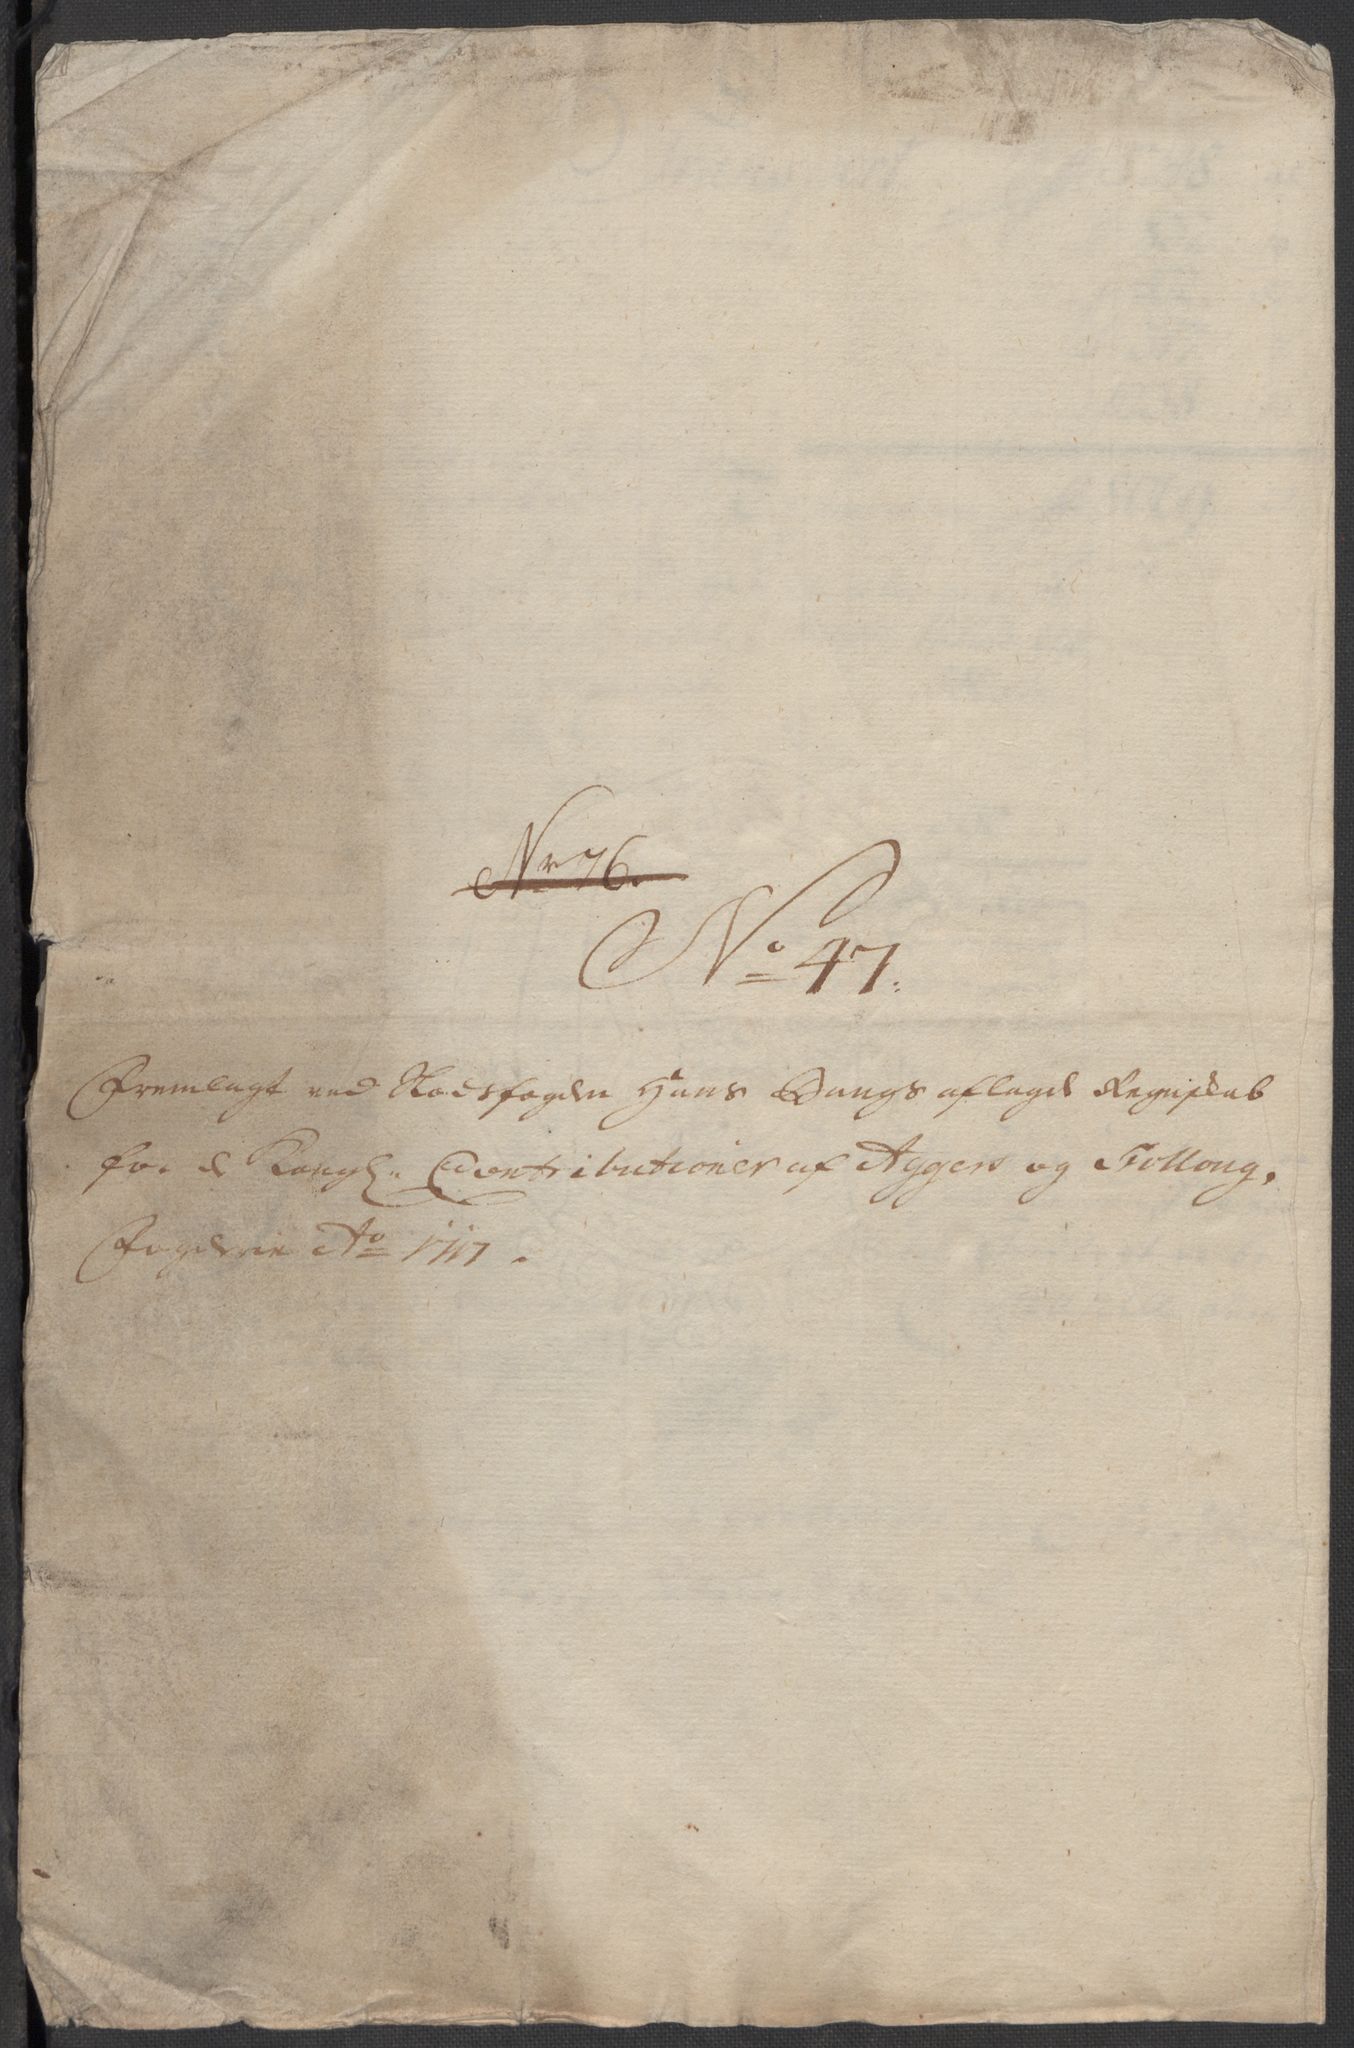 Nr 76.
No 47.
Fremlagt ved Hans Bangs aflagde Regnskab
for de Kongl. Contributioner af Aggers og Folloug,
Fogderie Ao 1717.